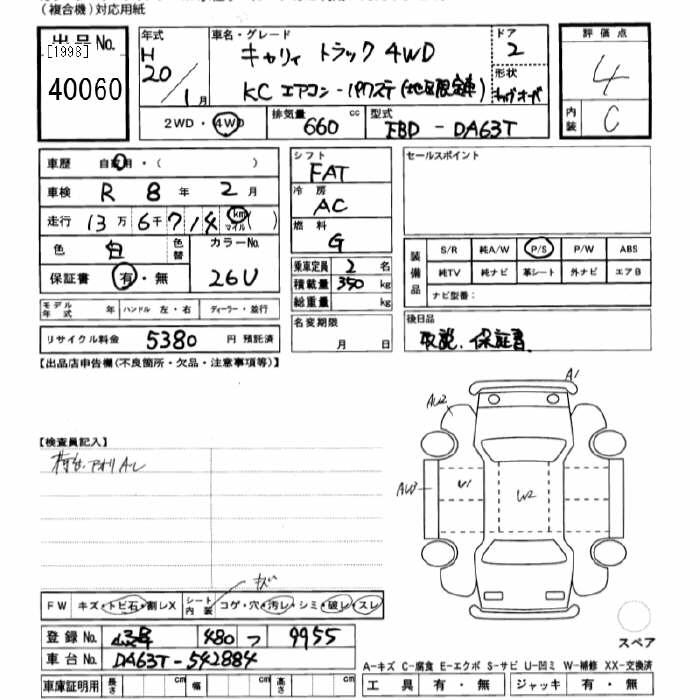 (複合機)対応用紙
出品No.
[1998]
40060
年式
H
20/1月
車名・グレード
キャリィ トラック 4WD
KC エアコン・パワステ(地区限定車)
ドア
2
形状
評価点
4
内装
C
2WD・4WD
排気量
660 cc
型式
EBD - DA63T
車歴
自家用・( )
車検
R 8年 2月
走行
13万6千714 km マイル ( )
色
白
色替
カラーNo.
26U
保証書
有・無
モデル年式 年
ハンドル 左・右
ディーラー・並行
リサイクル料金
5380 円 預託済
シフト
FAT
冷房
AC
燃料
G
乗車定員 2 名
積載量 350 kg
総重量 kg
名変期限
月 日
セールスポイント
装備品
S/R 純A/W P/S P/W ABS
純TV 純ナビ 革シート 外ナビ エアB
ナビ型番:
後日品
取説、保証書
【出品店申告欄(不良箇所・欠品・注意事項等)】
【検査員記入】
荷台、アオリ A、
A1
AU2
AU3
U1
W2
キズ
FW キズ・トビ石・割レX
シート内装
コゲ・穴・汚レ・シミ・破レ・スレ
登録No.
480 つ 9955
車台No.
DA63T-542884
車庫証明用
長さ cm 幅 cm 高さ cm
スペア
A-キズ C-腐食 E-エクボ S-サビ U-凹ミ W-補修 XX-交換済
工具 有・無 ジャッキ 有・無